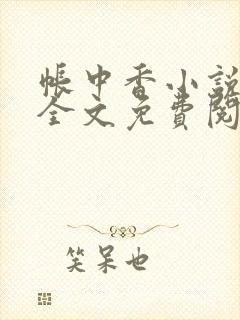 帐中香小説
全文免費閱
笑呆也